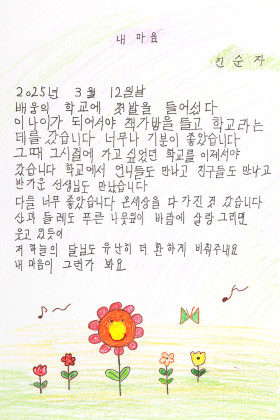 내 마음
진순자
2025년 3월 12일날
배움의 학교에 첫발을 들어섰다
이나이가 되어서야 책가방을 들고 학교라는
데를 갔습니다 너무나 기분이 좋았습니다
그때 그시절에 가고 싶었던 학교를 이제서야
갔습니다 학교에서 언니들도 만나고 친구들도 만나고
반가운 선생님도 만났습니다
다들 너무 좋았습니다 온세상을 다 가진것 갔습니다
산과 들레도 푸른 나뭇잎이 바람에 살랑 그리면
웃고 있듯이
저 하늘의 달님도 유난히 더 환하게 비춰주내요
내 마음이 그런가 봐요